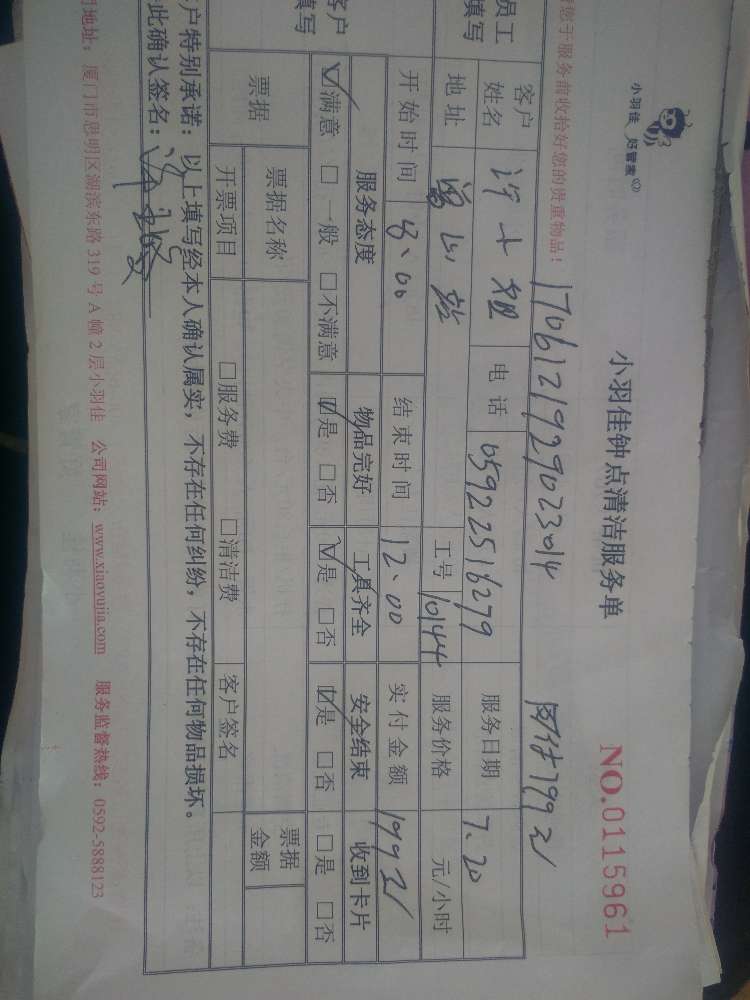 小羽佳 好管家
小羽佳钟点清洁服务单
NO.0115961
您于服务前收拾好您的贵重物品！
1706121929023014
员工 填写
客户 姓名
电话 05922516279
服务日期 7.20
地址
工号 10144
服务价格 元/小时
开始时间 8:00
结束时间 12:00
实付金额 199元
客户 填写
服务态度 物品完好 工具齐全 安全结束 收到卡片
☑满意 □一般 □不满意 ☑是 □否 ☑是 □否 ☑是 □否 □是 □否
票据 票据名称 票据 金额
开票项目 □服务费 □清洁费 客户签名
户特别承诺：以上填写经本人确认属实，不存在任何纠纷，不存在任何物品损坏。
此确认签名：
司地址：厦门市思明区湖滨东路319号A幢2层小羽佳 公司网站：www.xiaoyujia.com 服务监督热线：0592-5888123